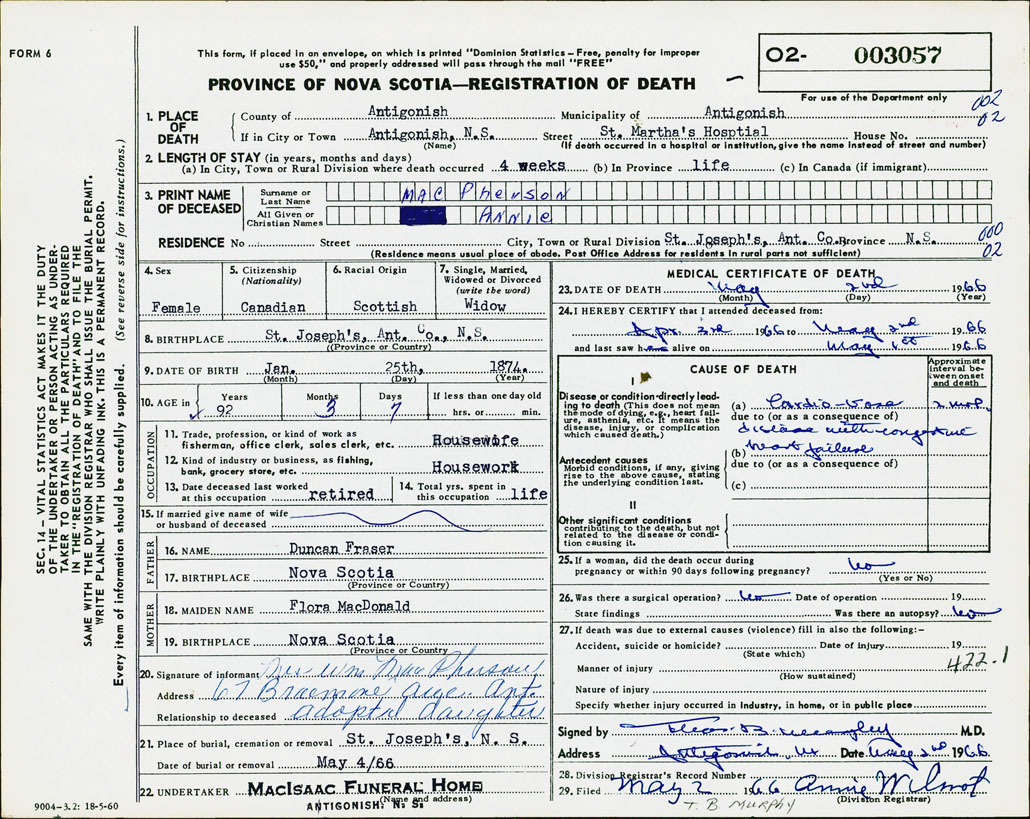 FORM 6
This form, if placed in an envelope, on which is printed "Dominion Statistics – Free, penalty for improper
use $50," and properly addressed will pass through the mail "FREE"
PROVINCE OF NOVA SCOTIA—REGISTRATION OF DEATH
O2- 003057
For use of the Department only
002
02
1. PLACE OF DEATH
County of Antigonish Municipality of Antigonish
If in City or Town Antigonish, N.S. Street St. Martha's Hosptial House No.
(Name) (If death occurred in a hospital or institution, give the name instead of street and number)
2. LENGTH OF STAY (in years, months and days)
(a) In City, Town or Rural Division where death occurred 4 weeks (b) In Province life (c) In Canada (if immigrant)
3. PRINT NAME OF DECEASED
Surname or Last Name MAC Pherson
All Given or Christian Names ANNie
RESIDENCE No Street City, Town or Rural Division St. Joseph's, Ant. Co. Province N.S.
(Residence means usual place of abode. Post Office Address for residents in rural parts not sufficient)
000
02
4. Sex
Female
5. Citizenship
(Nationality)
Canadian
6. Racial Origin
Scottish
7. Single, Married,
Widowed or Divorced
(write the word)
Widow
8. BIRTHPLACE St Joseph's, Ant. Co., N.S.
(Province or Country)
9. DATE OF BIRTH Jan. 25th, 1874.
(Month) (Day) (Year)
10. AGE in Years Months Days If less than one day old
92 3 7 hrs. or min.
OCCUPATION
11. Trade, profession, or kind of work as
fisherman, office clerk, sales clerk, etc. Housewife
12. Kind of industry or business, as fishing,
bank, grocery store, etc. Housework
13. Date deceased last worked
at this occupation retired
14. Total yrs. spent in
this occupation life
15. If married give name of wife
or husband of deceased
FATHER
16. NAME Duncan Fraser
17. BIRTHPLACE Nova Scotia
(Province or Country)
MOTHER
18. MAIDEN NAME Flora MacDonald
19. BIRTHPLACE Nova Scotia
(Province or Country)
20. Signature of informant Mrs Wm MacPherson
Address 67 Braemore Ave. Ant.
Relationship to deceased adopted daughter
21. Place of burial, cremation or removal St. Joseph's, N. S.
Date of burial or removal May 4/66
22. UNDERTAKER MacIsaac Funeral Home
(Name and address)
ANTIGONISH, N. S.
MEDICAL CERTIFICATE OF DEATH
23. DATE OF DEATH May 2nd 1966
(Month) (Day) (Year)
24. I HEREBY CERTIFY that I attended deceased from:
Apr. 3rd 1966 to May 2nd 1966
and last saw h alive on May 1st 1966
CAUSE OF DEATH
Approximate
interval be-
tween onset
and death
I
Disease or condition directly lead-
ing to death (This does not mean
the mode of dying, e.g., heart fail-
ure, asthenia, etc. It means the
disease, injury, or complication
which caused death.)
(a) Cardio-Vasc 2 mos.
due to (or as a consequence of)
disease with congestive
(b) heart failure
due to (or as a consequence of)
(c)
Antecedent causes
Morbid conditions, if any, giving
rise to the above cause, stating
the underlying condition last.
II
Other significant conditions
contributing to the death, but not
related to the disease or condi-
tion causing it.
25. If a woman, did the death occur during
pregnancy or within 90 days following pregnancy? No
(Yes or No)
26. Was there a surgical operation? No Date of operation 19
State findings Was there an autopsy? No
27. If death was due to external causes (violence) fill in also the following:–
Accident, suicide or homicide? Date of injury 19
(State which)
422.1
Manner of injury
(How sustained)
Nature of injury
Specify whether injury occurred in industry, in home, or in public place
Signed by M.D.
Address Antigonish, NS Date May 2nd 1966
28. Division Registrar's Record Number
29. Filed May 2 1966 Annie Wilmot
(Division Registrar)
T. B MURPHY
9004-3.2: 18-5-60
SEC. 14 – VITAL STATISTICS ACT MAKES IT THE DUTY
OF THE UNDERTAKER OR PERSON ACTING AS UNDER-
TAKER TO OBTAIN ALL THE PARTICULARS REQUIRED
IN THE "REGISTRATION OF DEATH" AND TO FILE THE
SAME WITH THE DIVISION REGISTRAR WHO SHALL ISSUE THE BURIAL PERMIT.
WRITE PLAINLY WITH UNFADING INK. THIS IS A PERMANENT RECORD.
Every item of information should be carefully supplied. (See reverse side for instructions.)